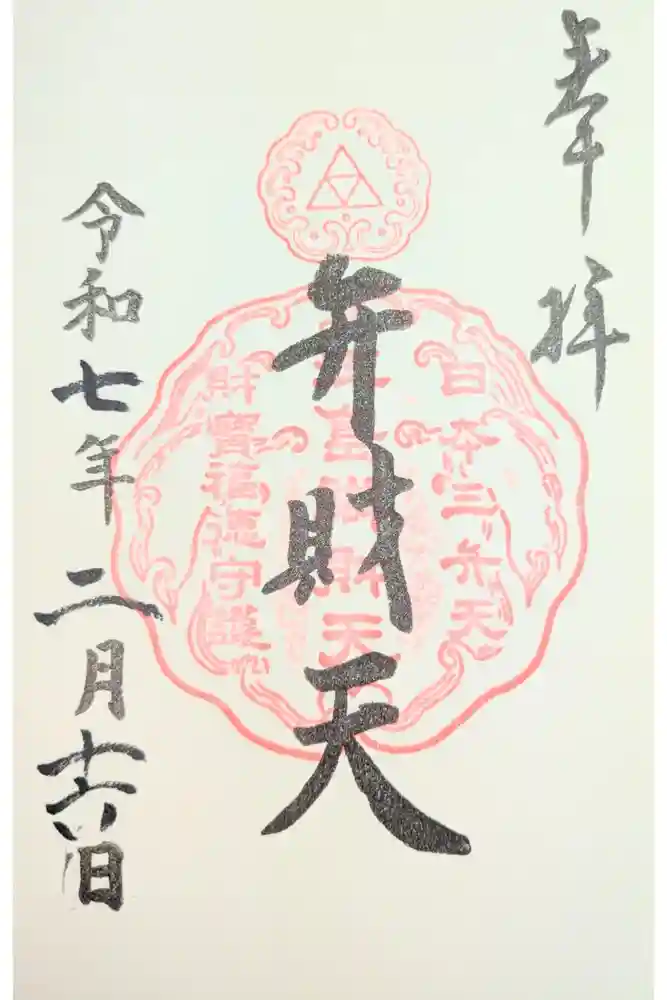 奉拝
日本三弁天
江島弁財天
弁財天
財寶福徳守護
令和七年二月十六日